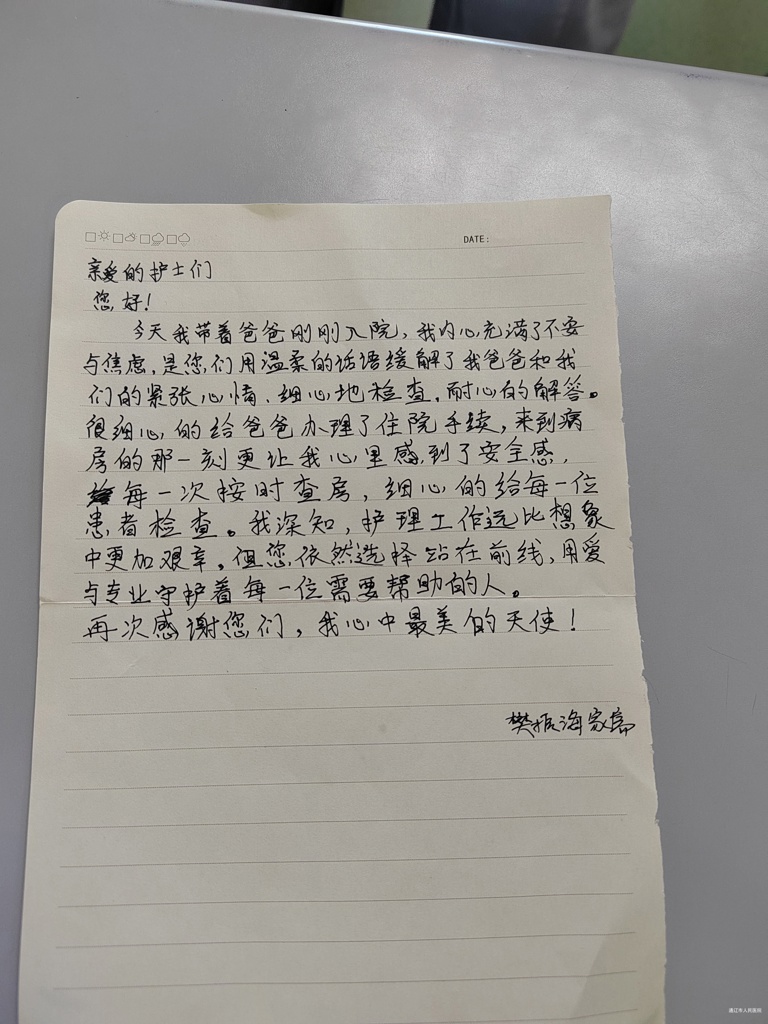 DATE:
亲爱的护士们
您好!
今天我带着爸爸刚刚入院,我内心充满了不安
与焦虑,是您们用温柔的话语缓解了我爸爸和我
们的紧张心情、细心地检查,耐心的解答。
很细心的给爸爸办理了住院手续,来到病
房的那一刻更让我心里感到了安全感,
每一次按时查房,细心的给每一位
患者检查。我深知,护理工作远比想象
中更加艰辛,但您依然选择站在前线,用爱
与专业守护着每一位需要帮助的人。
再次感谢您们,我心中最美的天使!
樊振海家属
通辽市人民医院